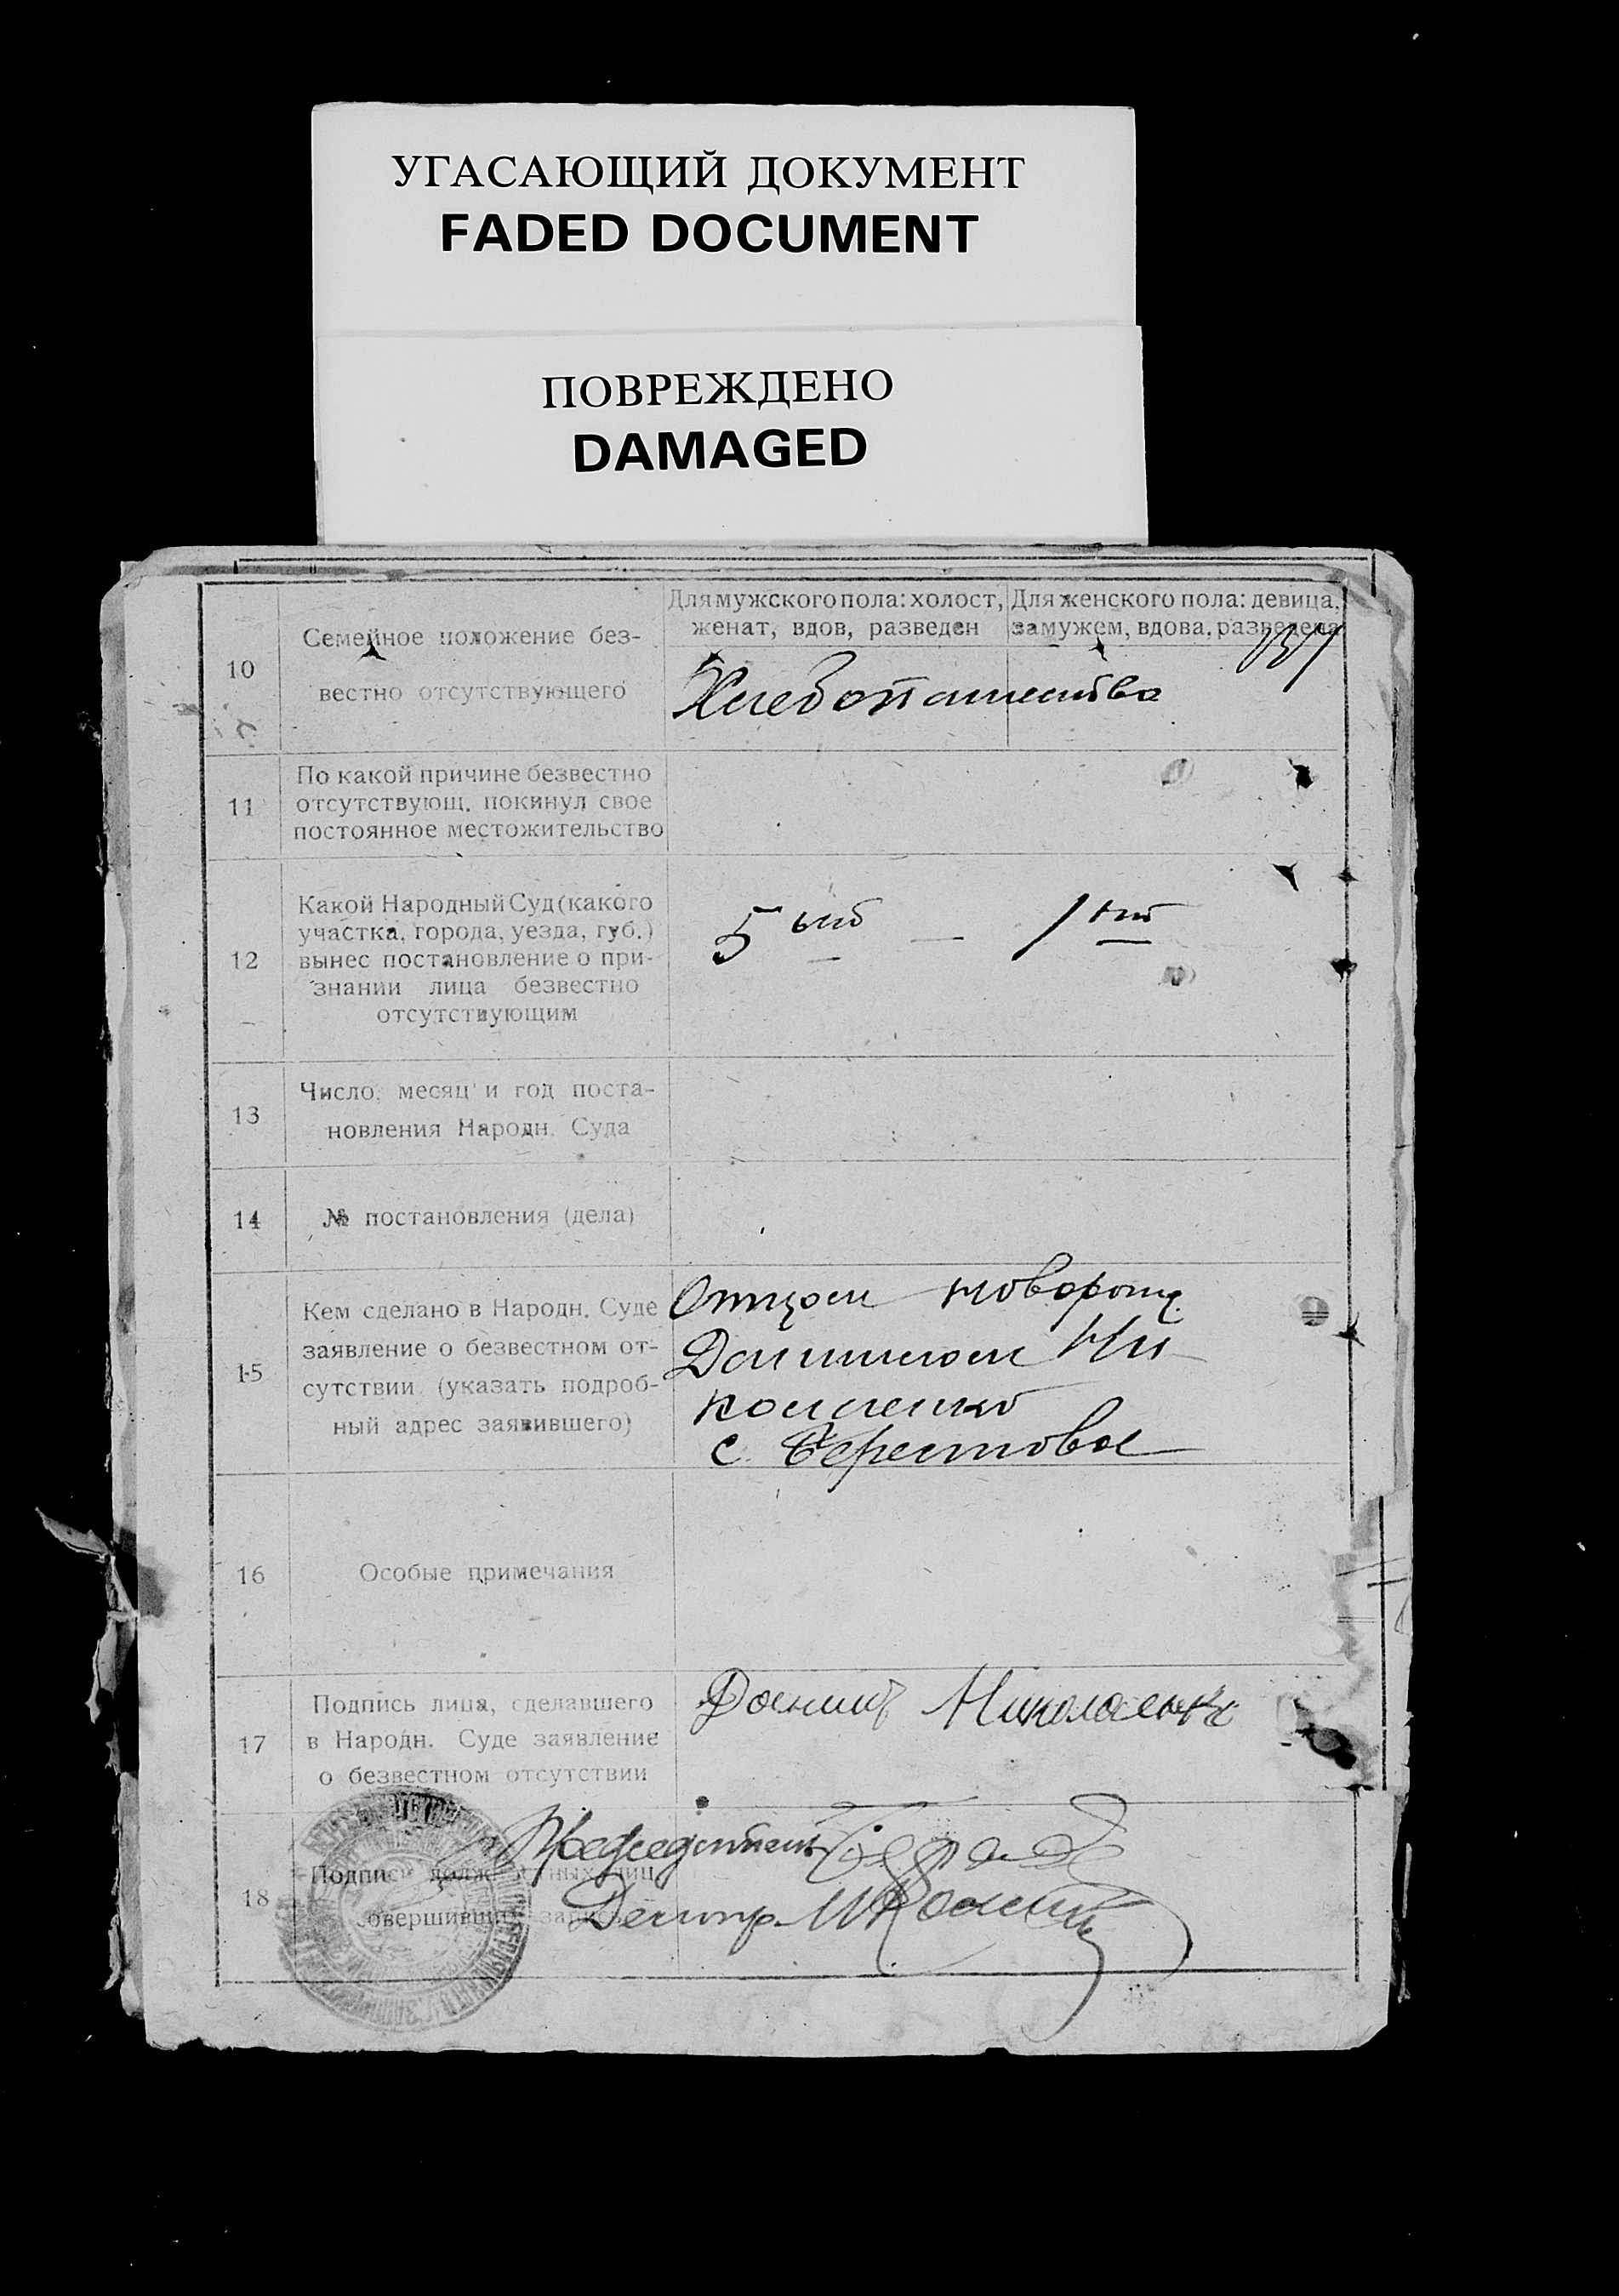 УГАСАЮЩИЙ ДОКУМЕНТ
FADED DOCUMENT
ПОВРЕЖДЕНО
DAMAGED
10
Семейное положение без-
вестно отсутствующего
Для мужского пола: холост,
женат, вдов, разведен
Для женского пола: девица,
замужем, вдова, разведена
Хлебопашество
11
По какой причине безвестно
отсутствующ. покинул свое
постоянное местожительство
12
Какой Народный Суд (какого
участка, города, уезда, губ.)
вынес постановление о при-
знании лица безвестно
отсутствующим
5 —
13
Число, месяц и год поста-
новления Народн. Суда
14
№ постановления (дела)
15
Кем сделано в Народн. Суде
заявление о безвестном от-
сутствии (указать подроб-
ный адрес заявившего)
Отцом новорожд.
Ни-
коленко
с. Берестовое
16
Особые примечания
17
Подпись лица, сделавшего
в Народн. Суде заявление
о безвестном отсутствии
Николаенко
18
Подписи должностных лиц,
совершивших запись
Председатель